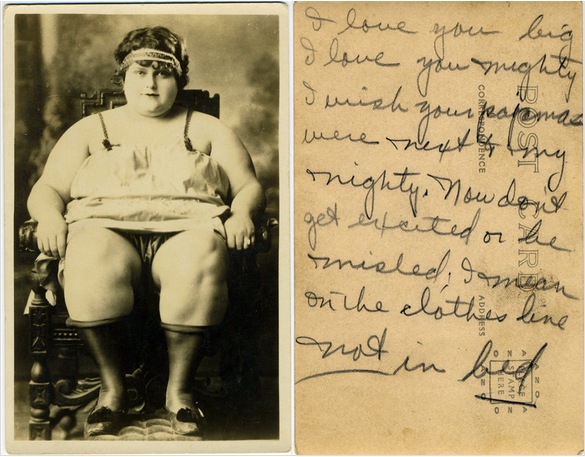 I love you big
I love you mighty
I wish your pajamas
were next to my
nighty. Now don't
get excited or be
misled, I mean
on the clothes line
not in bed
POST CARD
CORRESPONDENCE
ADDRESS
PLACE
STAMP
HERE